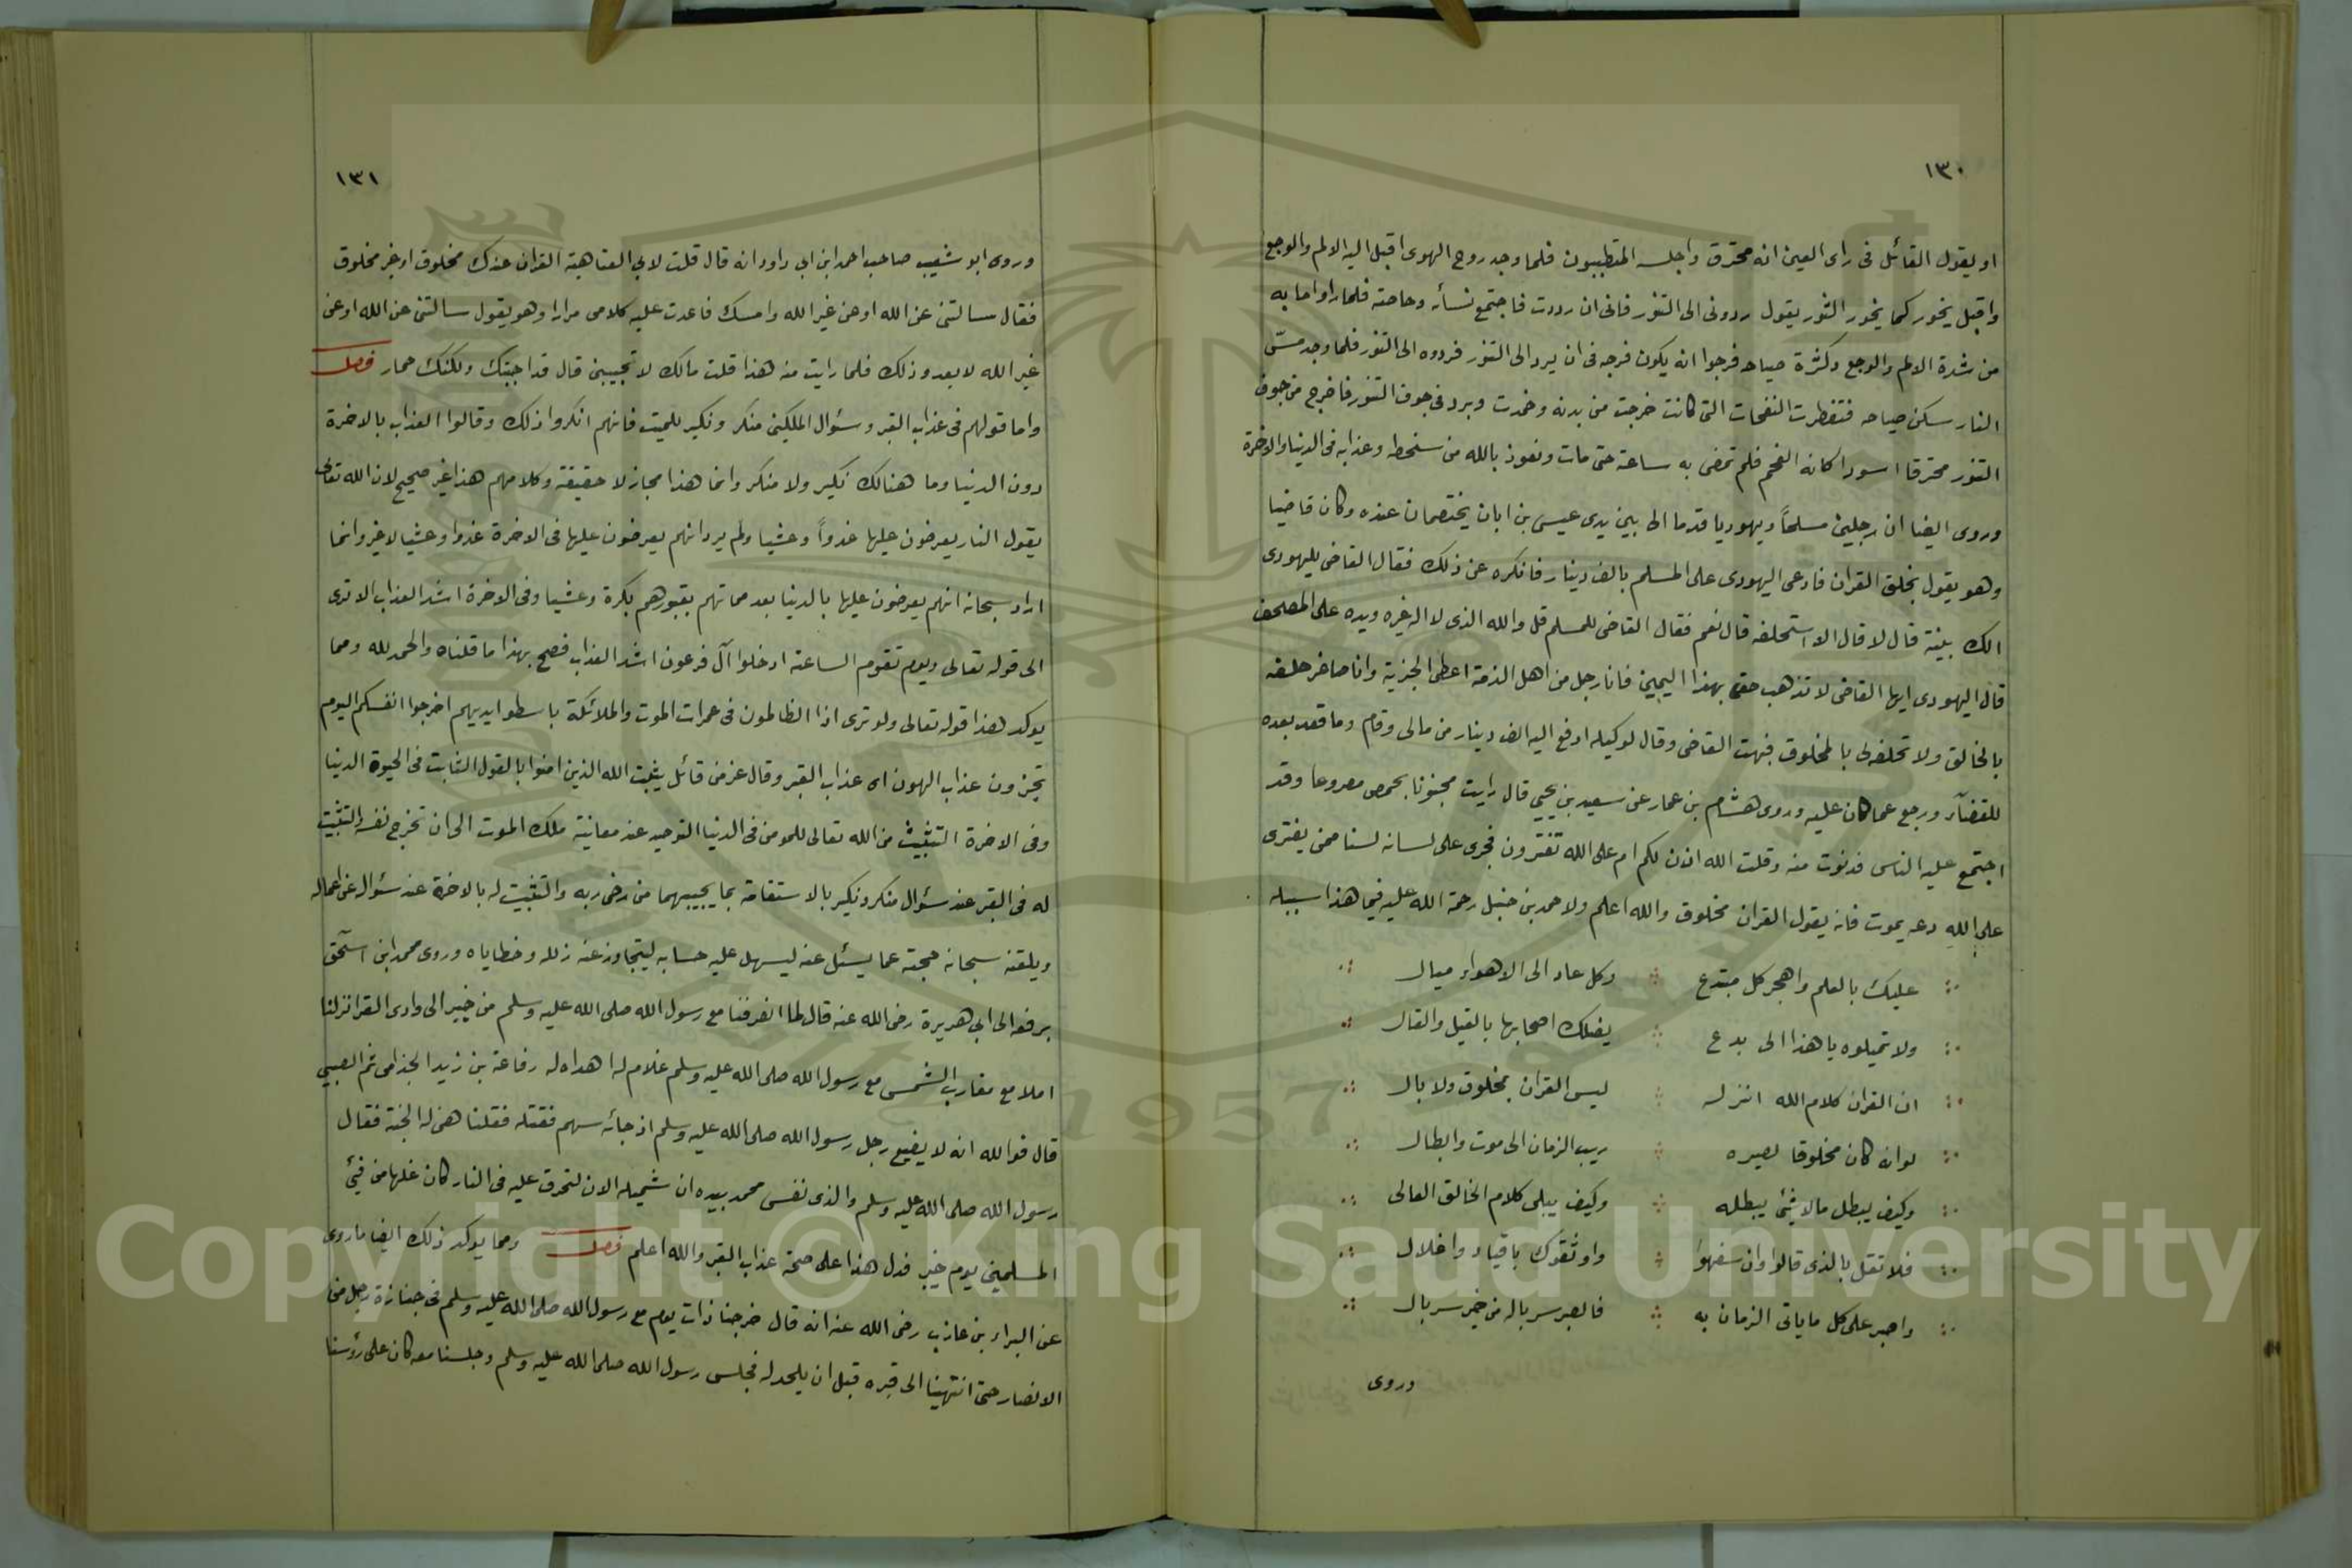 ١٣٠
او يقول القائل فى راى العين انه محترق واجلسه المتطببون فلما وجد روح الهوى اقبل اليه الالم والوجع
واقبل يخور كما يخور الثور يقول ردونى الى التنور فانى ان رددت فاجتمع نسأه وخاصته فلما راوا ما به
من شدة الالم والوجع وكثرة صياحه فرجوا انه يكون فرجه فى ان يرد الى التنور فردوه الى التنور فلما وجد مسّ
النار سكن صياحه فتفطرت النفخات التى كانت خرجت من بدنه وخمدت وبرد فى جوف التنور فاخرج من جوف
التنور محترقا اسودا كانه الفحم فلم تمضى به ساعة حتى مات ونعوذ بالله من سخطه وعذابه فى الدنيا والاخرة
وروى ايضا ان رجلين مسلماً ويهوديا قدما الى بين يدى عيسى بن ابان يختصمان عنده وكان قاضيا
وهو يقول بخلق القران فادعى اليهودى على المسلم بالف دينار فانكره عن ذلك فقال القاضى لليهودى
الك بينة قال لا قال الا استحلفه قال نعم فقال القاضى للمسلم قل والله الذى لا اله غيره ويده على المصحف
قال اليهودى ايها القاضى لا تذهب حقى بهذا اليمين فانا رجل من اهل الذمة اعطى الجزية وانا صاغر حلفه
بالخالق ولا تحلفه لى بالمخلوق فبهت القاضى وقال لوكيله ادفع اليه الف دينار من مالى وقام وما قعد بعده
للقضآء ورجع عما كان عليه وروى هشام بن عمار عن سعيد بن يحيى قال رايت مجنونا بحمص مصروعا وقد
اجتمع عليه الناس فدنوت منه وقلت الله اذن لكم ام على الله تفترون فجرى على لسانه لسنا ممن يفترى
على الله دعه يموت فانه يقول القران مخلوق والله اعلم ولاحمد بن حنبل رحمة الله عليه فيما هذا سبيله
عليك بالعلم واهجر كل مبتدع وكل عاد الى الاهواء ميال
ولا تميلوه يا هذا الى بدع يضلك اصحابها بالقيل والقال
ان القران كلام الله انزله ليس القران بمخلوق ولا بال
لو انه كان مخلوقا لصيره ريب الزمان الى موت وابطال
وكيف يبطل ما لا شئ يبطله وكيف يبلى كلام الخالق العالى
فلا تقل بالذى قالوا وان سفهوا واوثقوك باقياد واغلال
واصبر على كل ما ياتى الزمان به فالصبر سرباله من خير سربال
وروى
١٣١
وروى ابو شعيب صاحب احمد ابن ابى داود انه قال قلت لابى العتاهية القران عندك مخلوق او غير مخلوق
فقال سالتنى عن الله او عن غير الله وامسك فاعدت عليه كلامى مرارا وهو يقول سالتنى عن الله او عن
غير الله لا يعدو ذلك فلما رايت منه هذا قلت مالك لا تجيبنى قال قد اجبتك ولكنك حمار فصل
واما قولهم فى عذاب القبر وسئوال الملكين منكر ونكير للميت فانهم انكروا ذلك وقالوا العذاب بالاخرة
دون الدنيا وما هنالك نكير ولا منكر وانما هذا مجاز لا حقيقة وكلامهم هذا غير صحيح لان الله تعالى
يقول النار يعرضون عليها غدواً وعشيا ولم يرد انهم يعرضون عليها فى الاخرة غدوا وعشيا لا غير وانما
اراد سبحانه انهم يعرضون عليها بالدنيا بعد مماتهم بقبورهم بكرة وعشيا وفى الاخرة اشد العذاب الا ترى
الى قوله تعالى ويوم تقوم الساعة ادخلوا آل فرعون اشد العذاب فصح بهذا ما قلناه والحمد لله ومما
يوكد هذا قوله تعالى ولو ترى اذا الظالمون فى غمرات الموت والملائكة باسطوا ايديهم اخرجوا انفسكم اليوم
تجزون عذاب الهون اى عذاب القبر وقال عز من قائل يثبت الله الذين امنوا بالقول الثابت فى الحيوة الدنيا
وفى الاخرة التثبيت من الله تعالى للمومن فى الدنيا التوحيد عند معاينة ملك الموت الى ان تخرج نفسه والتثبيت
له فى القبر عند سئوال منكر ونكير بالاستقامة بما يجيبهما من رضى ربه والتثبيت له بالاخرة عند سئوال عن اعماله
ويلقنه سبحانه حجته عما يسئل عنه ليسهل عليه حسابه ليتجاوز عنه زلله وخطاياه وروى محمد ابن اسحق
يرفعه الى ابى هريرة رضى الله عنه قال لما انصرفنا مع رسول الله صلى الله عليه وسلم من خيبر الى وادى القرا نزلنا
املا مع مغارب الشمس مع رسول الله صلى الله عليه وسلم غلام له اهداه له رفاعة بن زيد الجذامى ثم الضبيبى
قال فوالله انه لا يضع رحل رسول الله صلى الله عليه وسلم اذ جائه سهم فقتله فقلنا هنى له الجنة فقال
رسول الله صلى الله عليه وسلم والذى نفس محمد بيده ان شميله الان لتحرق عليه فى النار كان غلها من فيئ
المسلمين يوم خيبر فدل هذا على صحة عذاب القبر والله اعلم فصل ومما يوكد ذلك ايضا ما روى
عن البراء بن عازب رضى الله عنه انه قال خرجنا ذات يوم مع رسول الله صلى الله عليه وسلم فى جنازة رجل من
الانصار حتى انتهينا الى قبره قبل ان يلحد له فجلس رسول الله صلى الله عليه وسلم وجلسنا معه كان على رؤسنا
Copyright © King Saud University
1957